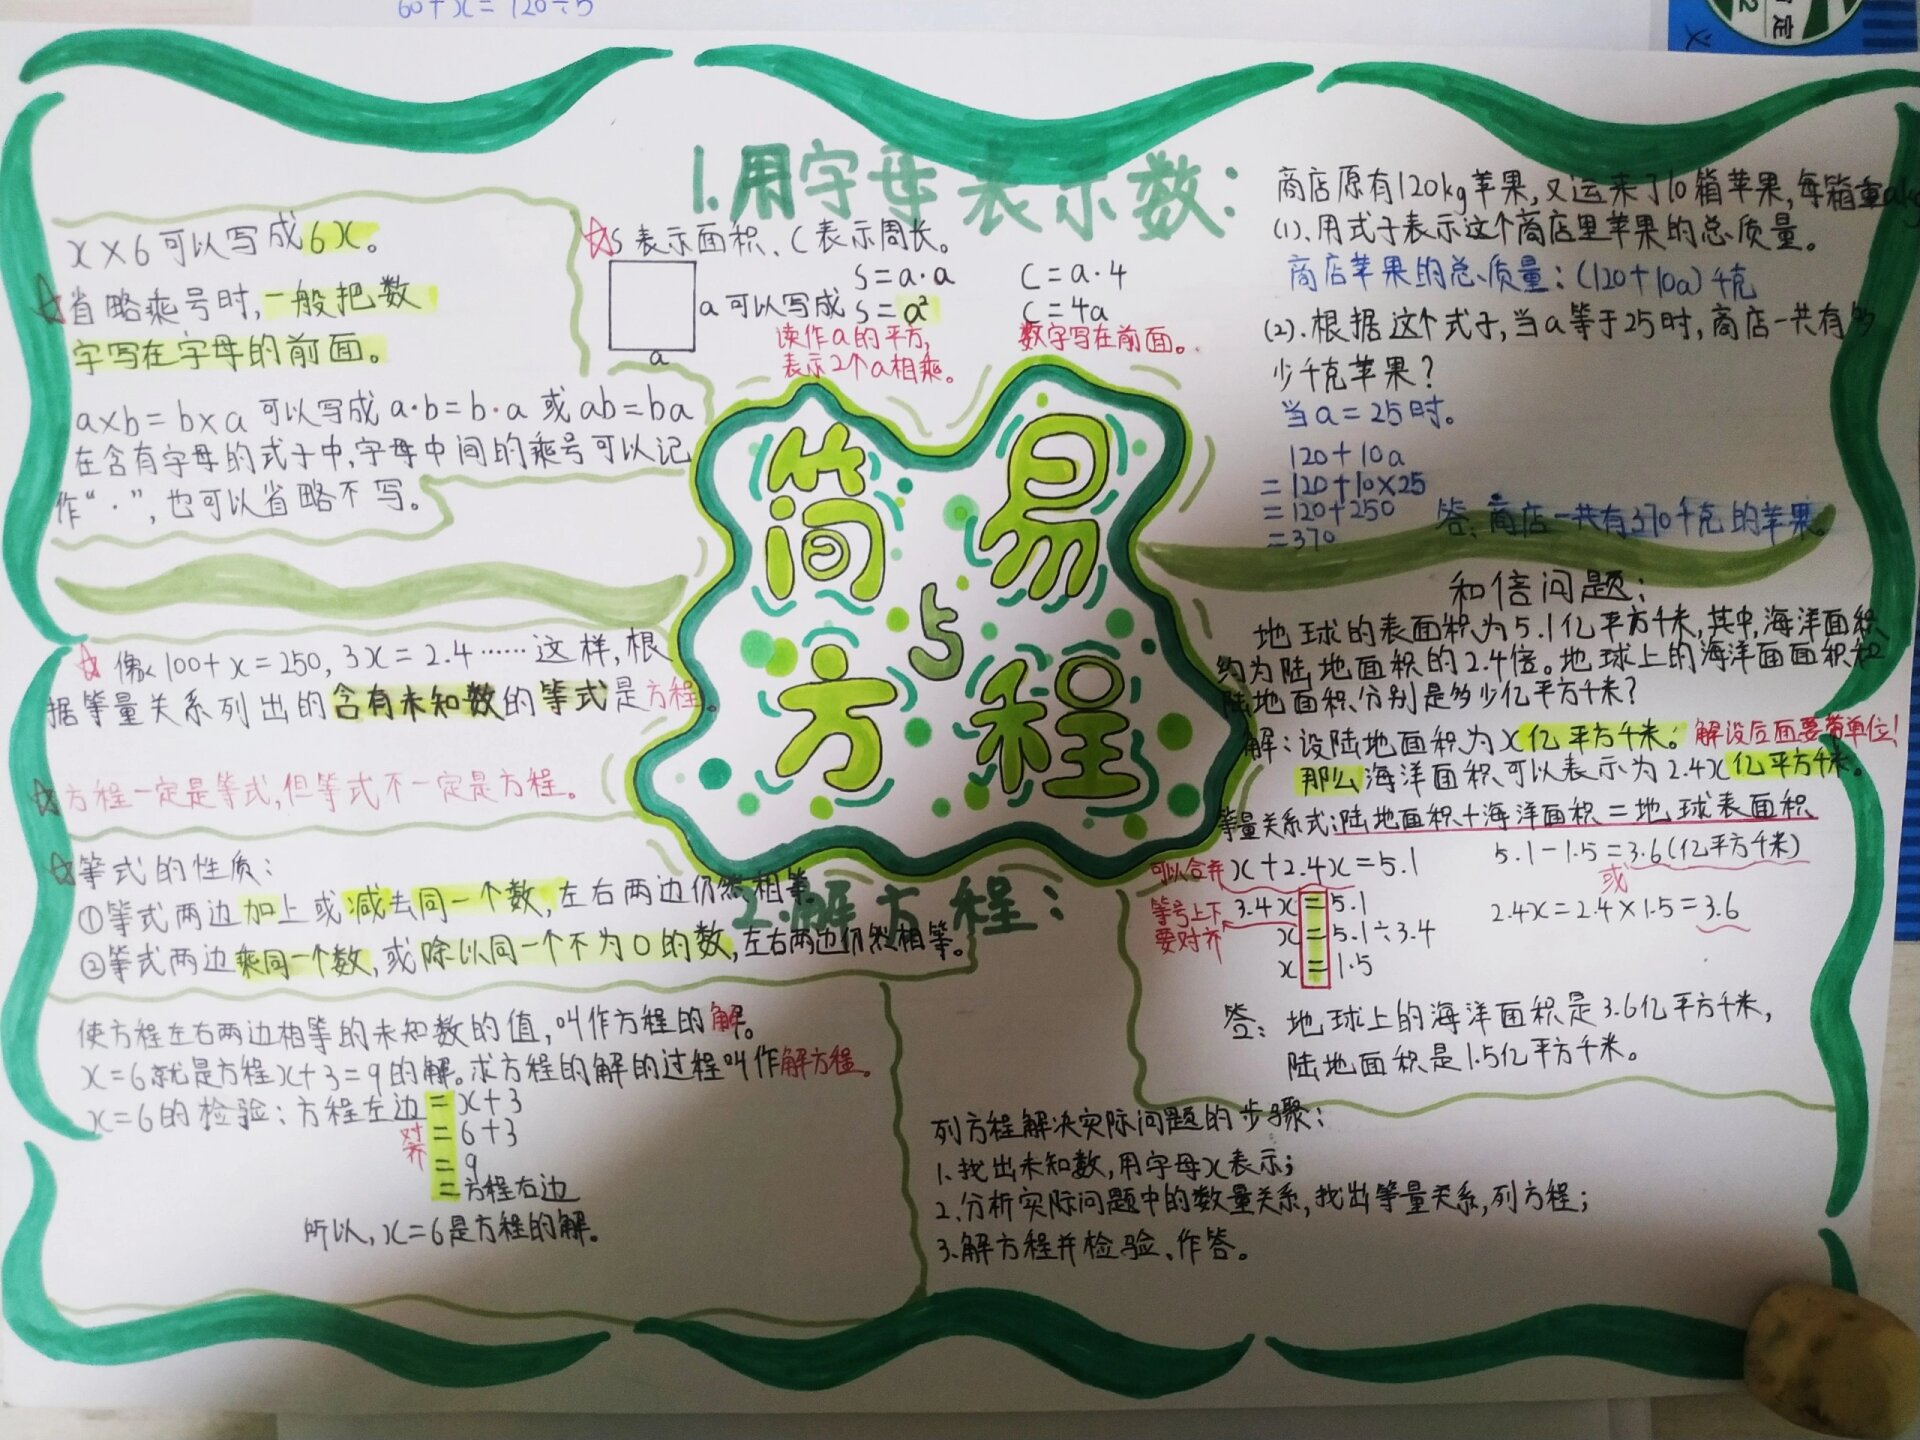 60+x=120÷5
定
2
义
1.用字母表示数:
x×6可以写成6x。
☆省略乘号时,一般把数
字写在字母的前面。
a×b=b×a 可以写成 a·b=b·a 或 ab=ba
在含有字母的式子中,字母中间的乘号可以记
作“·”,也可以省略不写。
☆S表示面积、C表示周长。
S=a·a C=a·4
a 可以写成 S=a² C=4a
a
读作a的平方, 数字写在前面。
表示2个a相乘。
商店原有120kg苹果,又运来了10箱苹果,每箱重akg
(1).用式子表示这个商店里苹果的总质量。
商店苹果的总质量:(120+10a)千克
(2).根据这个式子,当a等于25时,商店一共有多
少千克苹果?
当a=25时。
120+10a
=120+10×25
=120+250
=370
答:商店一共有370千克的苹果。
简易
与
方程
☆像100+x=250,3x=2.4……这样,根
据等量关系列出的含有未知数的等式是方程。
☆方程一定是等式,但等式不一定是方程。
☆等式的性质:
①等式两边加上或减去同一个数,左右两边仍然相等。
②等式两边乘同一个数,或除以同一个不为0的数,左右两边仍然相等。
2.解方程:
使方程左右两边相等的未知数的值,叫作方程的解。
x=6就是方程x+3=9的解。求方程的解的过程叫作解方程。
x=6的检验:方程左边=x+3
对齐
=6+3
=9
=方程右边
所以,x=6是方程的解。
和倍问题:
地球的表面积为5.1亿平方千米,其中,海洋面积
约为陆地面积的2.4倍。地球上的海洋面面积和
陆地面积分别是多少亿平方千米?
解:设陆地面积为x亿平方千米。解设后面要带单位!
那么海洋面积可以表示为2.4x亿平方千米。
等量关系式:陆地面积+海洋面积=地球表面积
可以合并 x+2.4x=5.1
等号上下 3.4x=5.1
要对齐 x=5.1÷3.4
x=1.5
5.1-1.5=3.6(亿平方千米)
或
2.4x=2.4×1.5=3.6
答:地球上的海洋面积是3.6亿平方千米,
陆地面积是1.5亿平方千米。
列方程解决实际问题的步骤:
1.找出未知数,用字母x表示;
2.分析实际问题中的数量关系,找出等量关系,列方程;
3.解方程并检验、作答。